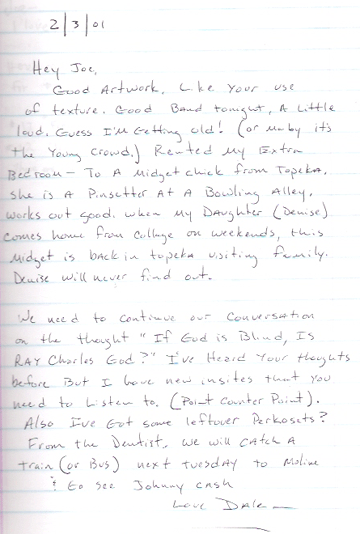 2/3/01
Hey Joe,
Good Artwork, Like Your use
of texture. Good Band tonight, A Little
loud. Guess I'm Getting old! (or Mayby its
the Young Crowd.) Rented My Extra
Bedroom - To A Midget chick from Topeka.
she is A Pinsetter At A Bowling Alley.
works out good. when My Daughter (Denise)
Comes home from Collage on weekends, this
Midget is back in topeka visiting family.
Denise will never find out.
We need to continue our Conversation
on the thought "If God is Blind, Is
RAY Charles God?" I've Heard Your thoughts
before But I have new insites that you
need to Listen to. (Point Counter Point).
Also I've Got some leftover Perkosets?
From the Dentist, we will CAtch A
train (or Bus) next tuesday to Moline
! Go see Johnny cash
Love Dale